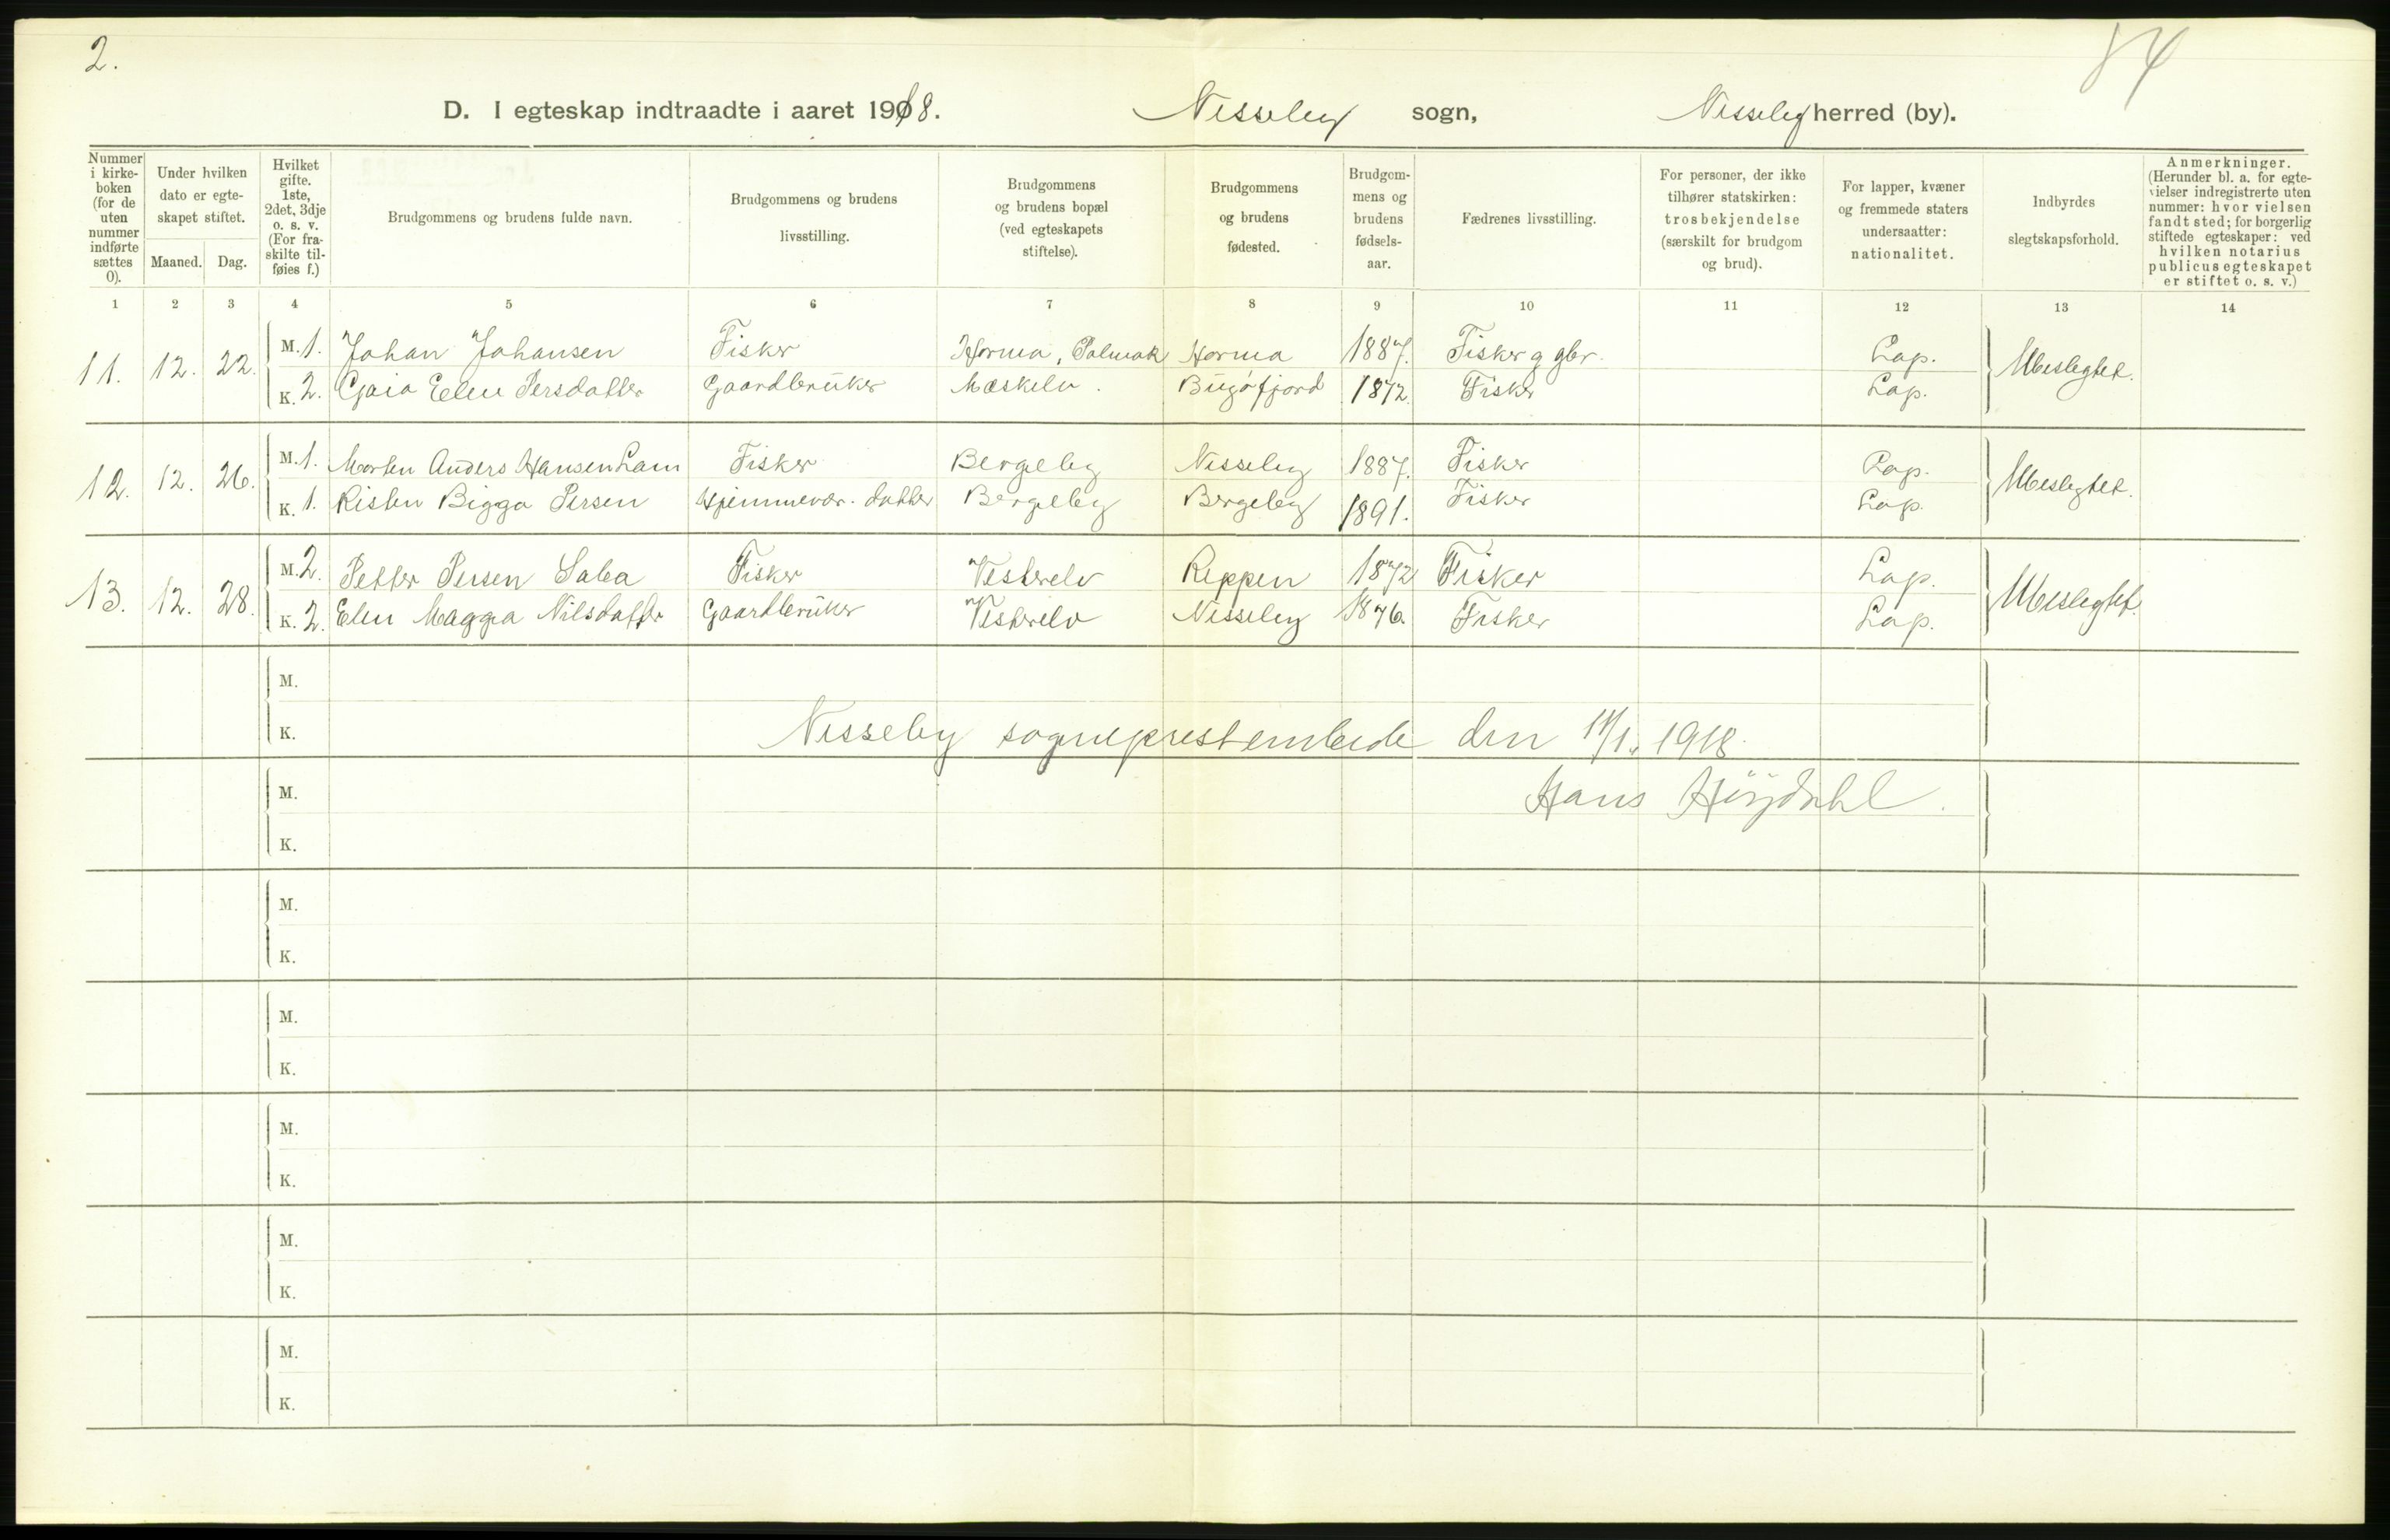 2.
84
D. I egteskap indtraadte i aaret 1918. Nesseby sogn, Nesseby herred (by).
Nummer i kirke-boken (for de uten nummer indførte sættes 0).
Under hvilken dato er egte-skapet stiftet.
Maaned. Dag.
Hvilket gifte. 1ste, 2det, 3dje o. s. v. (For fra-skilte til-føies f.)
Brudgommens og brudens fulde navn.
Brudgommens og brudens livsstilling.
Brudgommens og brudens bopæl (ved egteskapets stiftelse).
Brudgommens og brudens fødested.
Brudgom-mens og brudens fødsels-aar.
Fædrenes livsstilling.
For personer, der ikke tilhører statskirken: trosbekjendelse (særskilt for brudgom og brud).
For lapper, kvæner og fremmede staters undersaatter: nationalitet.
Indbyrdes slegtskapsforhold.
Anmerkninger. (Herunder bl. a. for egte-vielser indregistrerte uten nummer: hvor vielsen fandt sted; for borgerlig stiftede egteskaper: ved hvilken notarius publicus egteskapet er stiftet o. s. v.)
1 2 3 4 5 6 7 8 9 10 11 12 13 14
11. 12. 22. M. 1. Johan Johansen Fisker Horma, Polmak Horma 1887. Fisker g gbr. Lap. Ubeslegtet.
K. 2. Gaia Elen Persdatter Gaardbruker Mæskelv. Bugøfjord 1872. Fisker Lap.
12. 12. 26. M. 1. Morten Anders Hansen Lam Fisker Bergeby Nesseby 1887. Fisker Lap. Ubeslegtet.
K. 1. Risten Bigga Persen Hjemmevær. datter Bergeby Bergeby 1891. Fisker Lap.
13. 12. 28. M. 2. Petter Persen Saba Fisker Vesterelv Reppen 1872 Fisker Lap. Ubeslegtet.
K. 2. Elen Magga Nilsdatter Gaardbruker Vesterelv Nesseby 1876. Fisker Lap.
M.
K.
Nesseby sogneprestembede den 11/1. 1918.
M.
Hans Høydahl.
K.
M.
K.
M.
K.
M.
K.
M.
K.
M.
K.